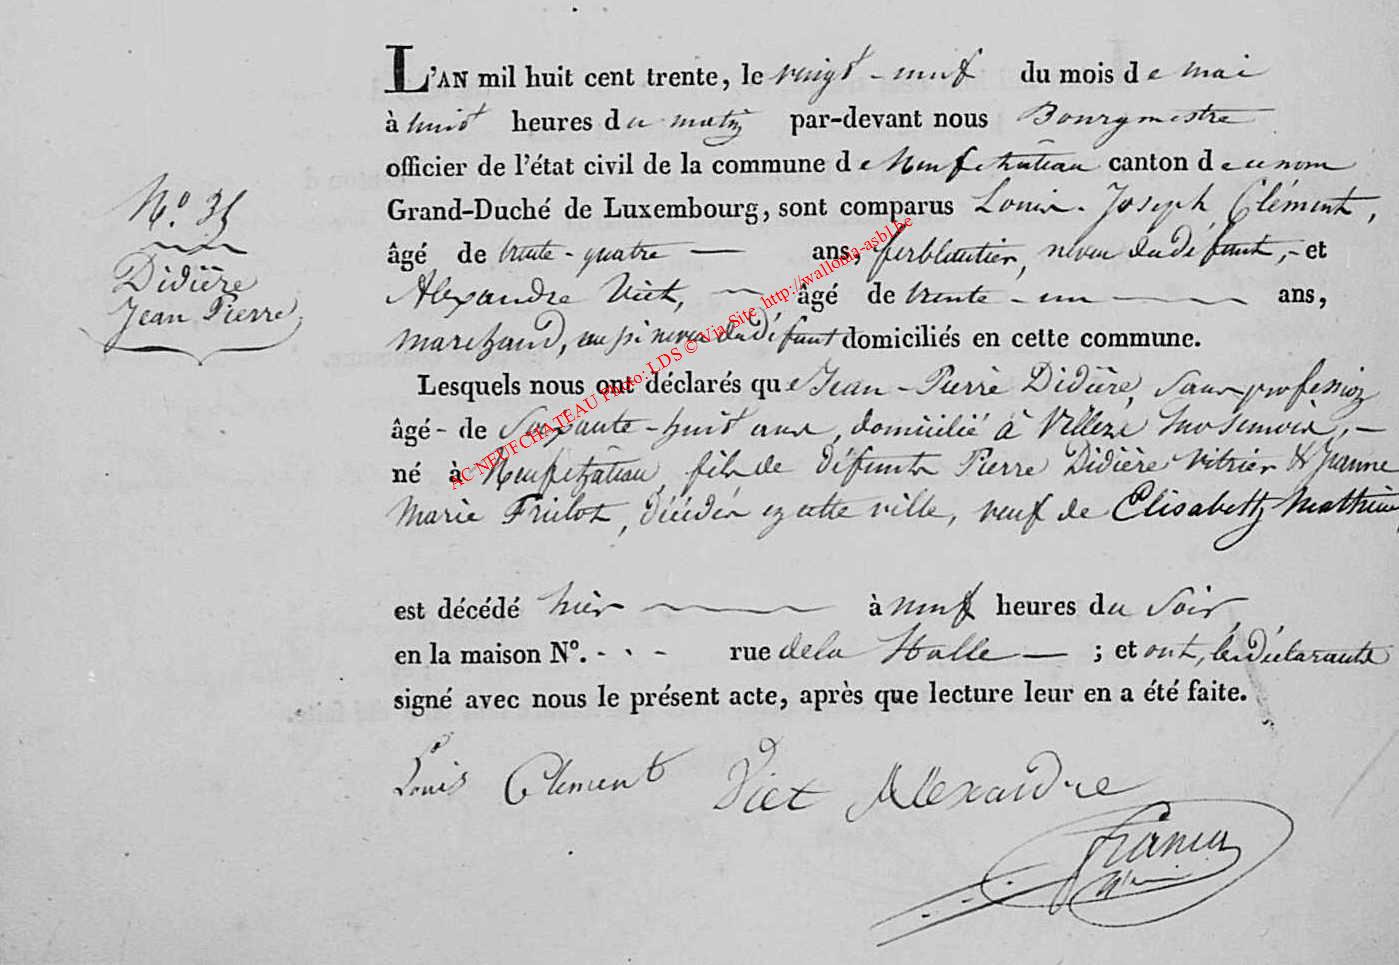 L'AN mil huit cent trente, le vingt-neuf du mois de mai
à huit heures du matin par-devant nous Bourgmestre
officier de l'état civil de la commune de Neufchâteau canton de ce nom
Grand-Duché de Luxembourg, sont comparus Louis-Joseph Clément,
âgé de trente-quatre ans, ferblantier, neveu du défunt, et
Alexandre Viet, âgé de trente-un ans,
marchand, aussi neveu du défunt domiciliés en cette commune.
Lesquels nous ont déclarés que Jean-Pierre Didière, sans profession
âgé de Soixante-huit ans, domicilié à Villers sur Semois,
né à Neufchâteau, fils de défunts Pierre Didière Vitrier & Jeanne
Marie Frulot, décédés en cette ville, veuf de Elisabeth Mathieu
est décédé hier à neuf heures du Soir,
en la maison N°. - - - rue de la Halle ; et ont, les déclarants
signé avec nous le présent acte, après que lecture leur en a été faite.
N.º 35
Didière
Jean Pierre
Louis Clement Viet Alexandre
AC NEUFCHATEAU Photo: LDS © Via Site http://wallonia-asbl.be